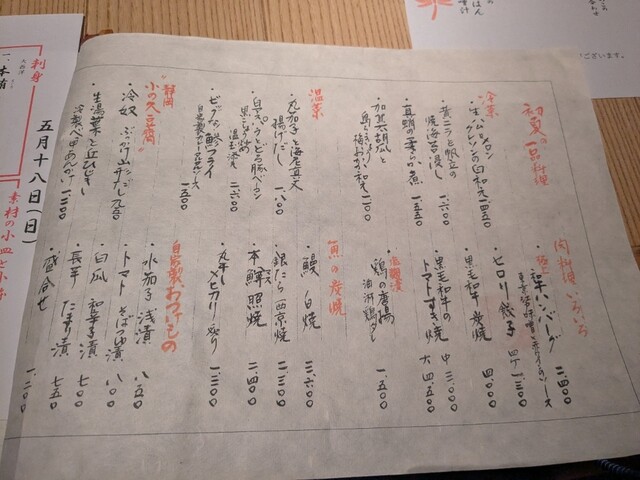 初夏の一品料理
冷菜
生ハムとメロン
クレソンの白和え 一、四五〇
黄ニラと帆立の
焼海苔浸し 一、六〇〇
真蛸の柔らか煮 一、五五〇
加賀太胡瓜と
梅おかか和え 一、一〇〇
温菜
丸茄子と海老真丈
揚げだし 一、八〇〇
白アスパラとどろ豚ベーコン
黒こしょう炒め
温玉添え 二、六〇〇
ビッグな鯵フライ
自家製タルタルソース 一、五〇〇
静岡
小の久豆腐
冷奴 ぶっかけ山形だし 九五〇
生湯葉と
冷製べっ甲あんかけ 一、三〇〇
肉料理いろいろ
極上
和牛ハンバーグ
二、四〇〇
ヒロリ餃子 四ケ 一、三〇〇
黒毛和牛 炭焼 四、〇〇〇
黒毛和牛の
トマトすき焼 中 三、〇〇〇
大 四、五〇〇
鶏の唐揚
油淋鶏ダレ 一、五〇〇
魚の炭焼
鰻 白焼 三、六〇〇
銀だら 西京焼 二、三〇〇
本鱒 照焼 二、四〇〇
丸干しメヒカリ炙り 一、三〇〇
自家製おつけもの
水茄子 浅漬 八五〇
トマト そばつゆ漬 八〇〇
白瓜 和辛子漬 七〇〇
長芋 たまり漬 七五〇
盛合せ 一、二〇〇
刺身
五月十八日(日)
ございます。